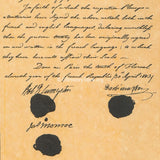 In faith of which the respective Plenipo-
tentiaries have signed the above articles both in the
french and english languages, declaring nevertheless
that the present treaty has been originally agreed
on and written in the french language; to which
they have hereunto affixed their Seals.
Done at Paris the tenth of Floreal
eleventh year of the french Republic 30 April 1803
Robt R Livingston
Barbé Marbois
Jas Monroe